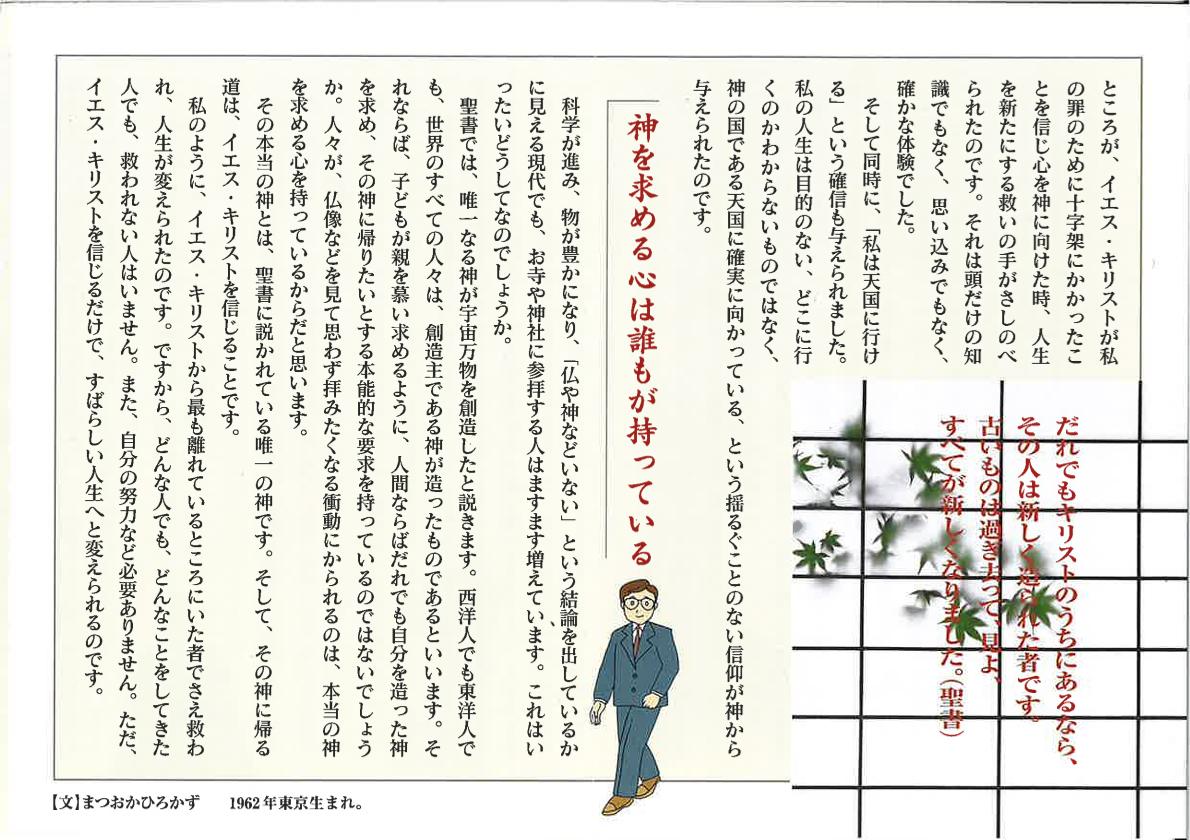 ところが、イエス・キリストが私
の罪のために十字架にかかったこ
とを信じ心を神に向けた時、人生
を新たにする救いの手がさしのべ
られたのです。それは頭だけの知
識でもなく、思い込みでもなく、
確かな体験でした。
そして同時に、「私は天国に行け
る」という確信も与えられました。
私の人生は目的のない、どこに行
くのかわからないものではなく、
神の国である天国に確実に向かっている、という揺るぐことのない信仰が神から
与えられたのです。
だれでもキリストのうちにあるなら、
その人は新しく造られた者です。
古いものは過ぎ去って、見よ、
すべてが新しくなりました。(聖書)
神を求める心は誰もが持っている
科学が進み、物が豊かになり、「仏や神などいない」という結論を出しているか
に見える現代でも、お寺や神社に参拝する人はますます増えています。これはい
ったいどうしてなのでしょうか。
聖書では、唯一なる神が宇宙万物を創造したと説きます。西洋人でも東洋人で
も、世界のすべての人々は、創造主である神が造ったものであるといいます。そ
れならば、子どもが親を慕い求めるように、人間ならばだれでも自分を造った神
を求め、その神に帰りたいとする本能的な要求を持っているのではないでしょう
か。人々が、仏像などを見て思わず拝みたくなる衝動にかられるのは、本当の神
を求める心を持っているからだと思います。
その本当の神とは、聖書に説かれている唯一の神です。そして、その神に帰る
道は、イエス・キリストを信じることです。
私のように、イエス・キリストから最も離れているところにいた者でさえ救わ
れ、人生が変えられたのです。ですから、どんな人でも、どんなことをしてきた
人でも、救われない人はいません。また、自分の努力など必要ありません。ただ、
イエス・キリストを信じるだけで、すばらしい人生へと変えられるのです。
【文】まつおかひろかず 1962年東京生まれ。